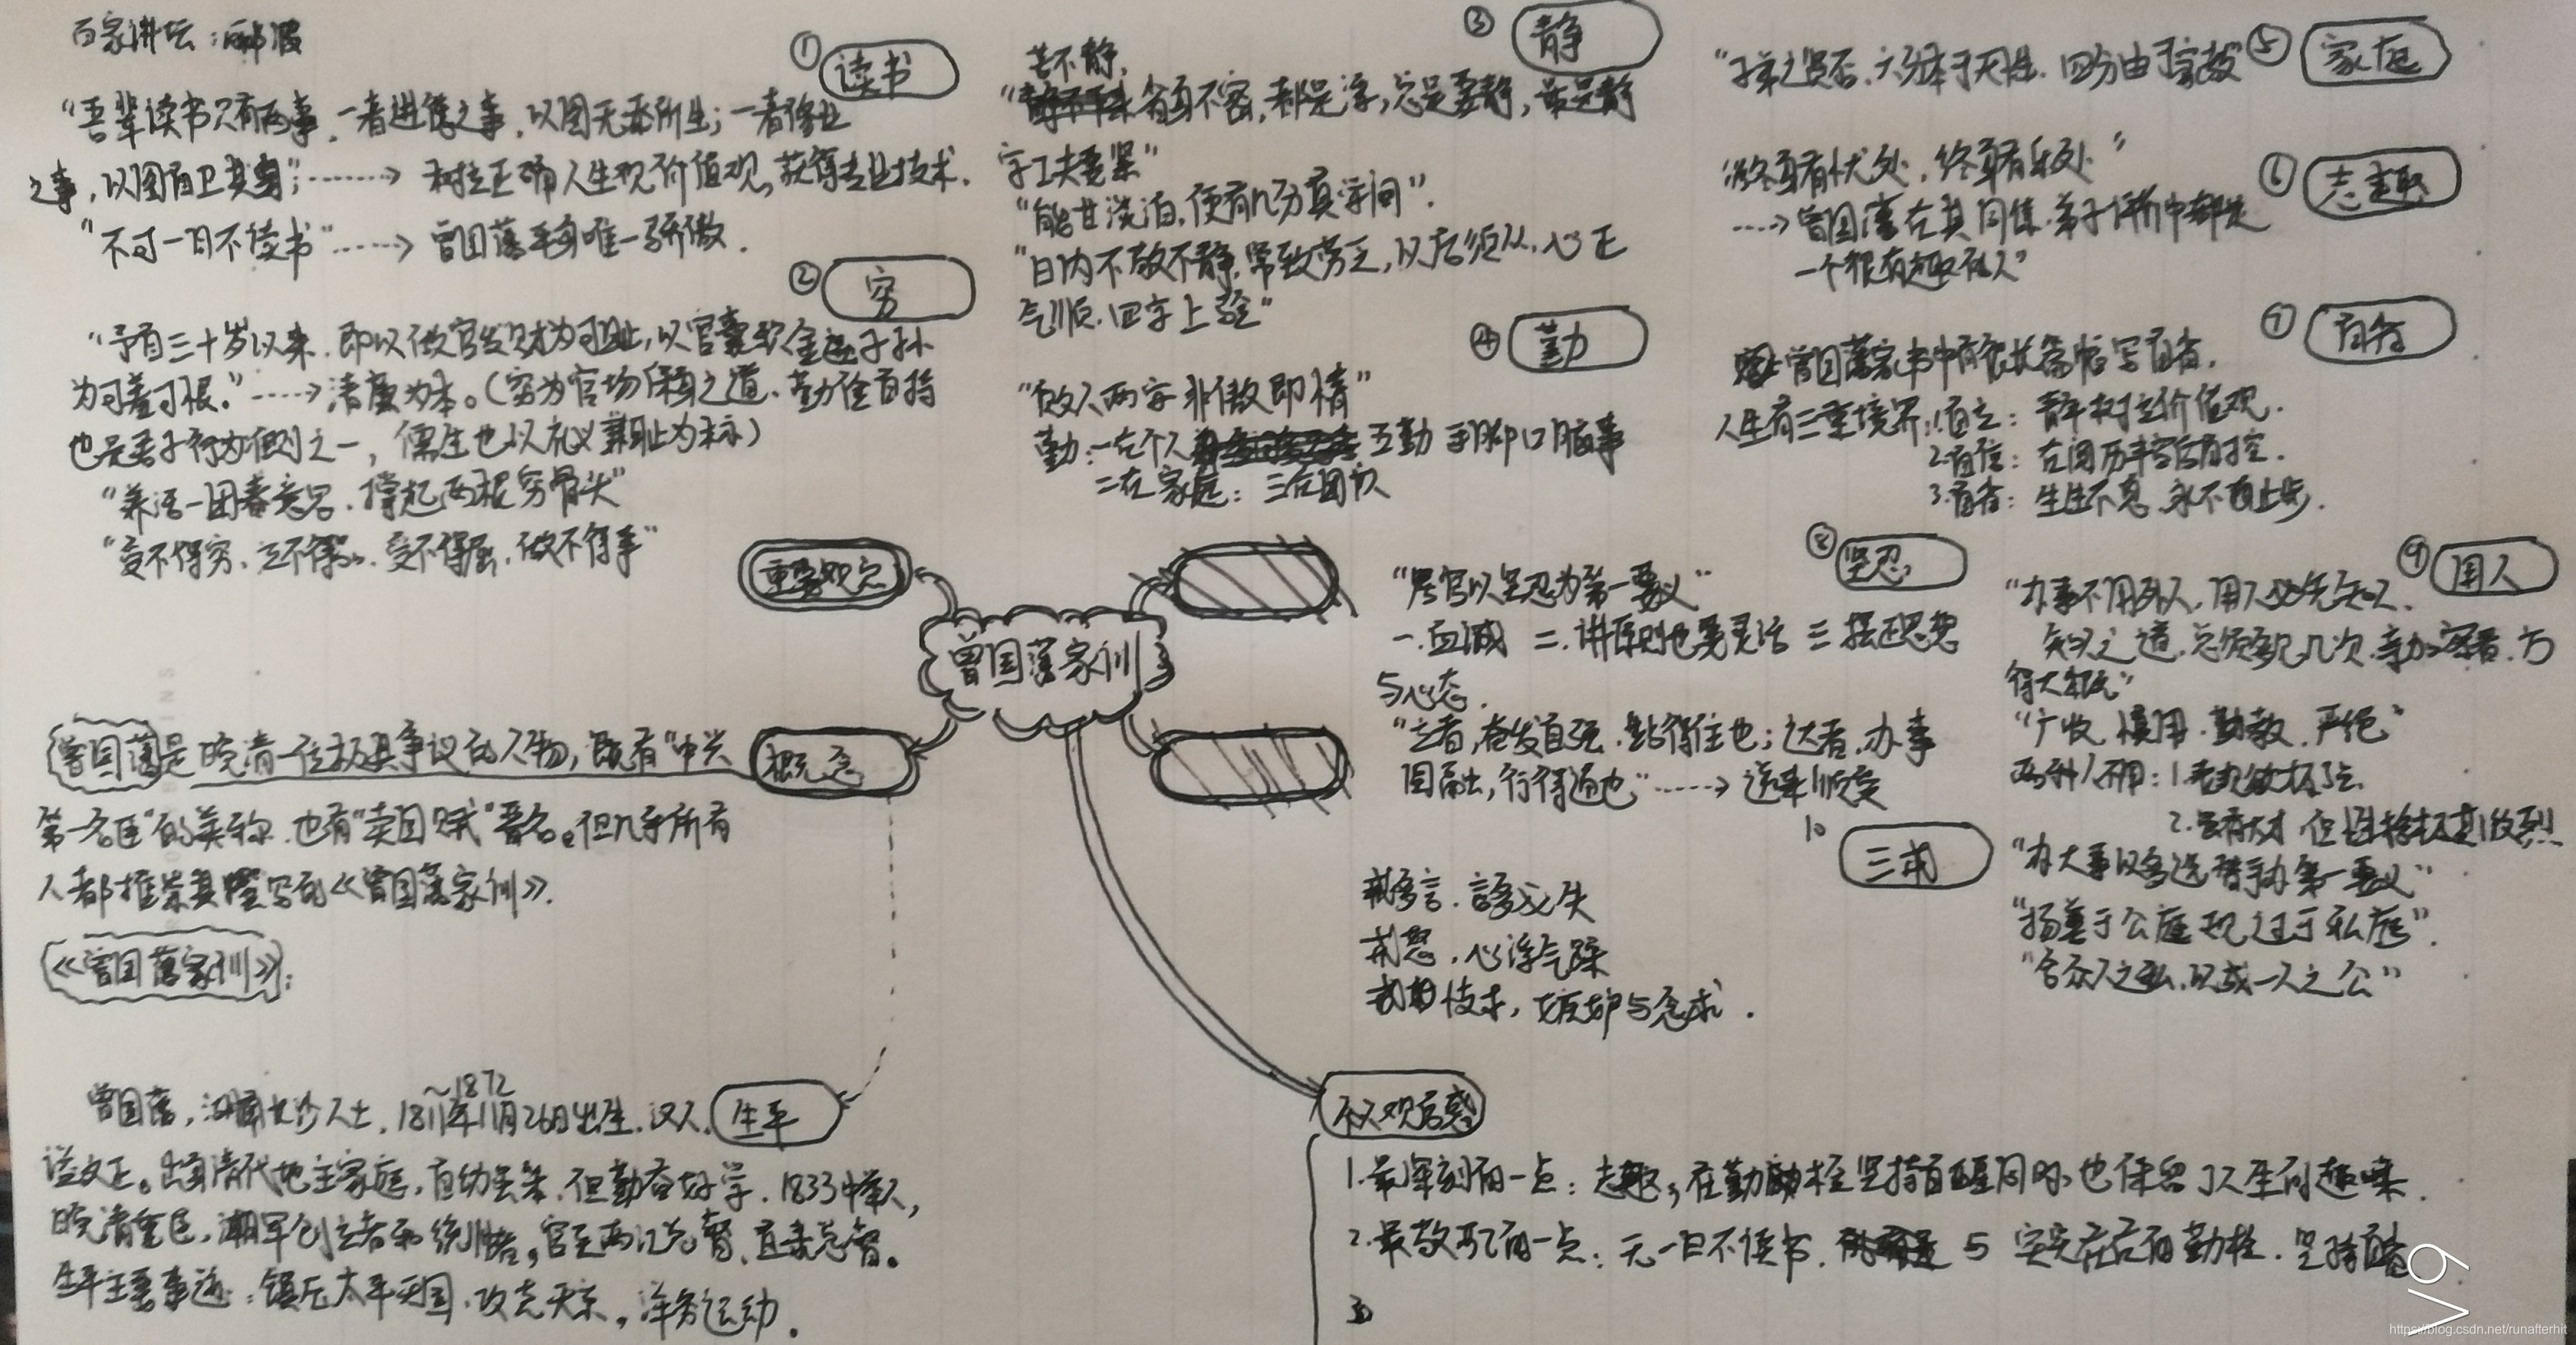 百家讲坛：郦波
① 读书
"吾辈读书只有两事，一者进德之事，以图无忝所生；一者修业
之事，以图自卫其身"；→ 树立正确人生观价值观，获得专业技术．
"不可一日不读书" → 曾国藩平身唯一骄傲．
② 穷
"予自三十岁以来，即以做官发财为可耻，以官囊积金遗子孙
为可羞可恨。" → 清廉为本。（穷为官场保身之道、勤俭自持
也是君子行为准则之一，儒生也以礼义兼耻为标）
"养活一团春意思．撑起两根穷骨头"
"受不得穷、立不得品、受不得屈、做不得事"
③ 静
若不静，
省身不密，都是浮，总是要静，最是静
字工夫要紧"
"能甘淡泊，便有几分真学问"．
"日内不敬不静，常致劳乏，以后须从，心正
气顺．四字上验"
④ 勤
"败人两字非傲即惰"
勤：一在个人 五勤 手脚口脑事
二在家庭：三在团队
⑤ 家庭
"子弟之贤否，六分本于天性．四分由于家教"
⑥ 志趣
"终身有忧处，终身有乐处"
→ 曾国藩在其同僚、弟子 中都是
一个很有趣的人"
⑦ 自省
曾国藩家书中有很长篇幅写自省．
人生有三重境界：1.自立：青年树立价值观．
2.自信：在阅历丰富后自控．
3.自省：生生不息 永不自止步．
⑧ 坚忍
"居官以坚忍为第一要义"
一.血诚 二.讲原则也要灵活 三 摆正思想
与心态．
"立者，奋发自强，站得住也；达者，办事
圆融，行得通也" → 逆来顺受
⑨ 用人
"办事不用外人，用人必先知人．
知人之道，总须多见几次，亲加察看，方
得大概"
"广收、慎用、勤教、严绳"
两种人不用：1.
2.虽有大才 但性格极其
"办大事以多选替手为第一要义"
"扬善于公庭 规过于私庭"．
"合众人之私，以成一人之公"
10 三戒
戒多言．言多必失
戒怒．心浮气躁
忮求，嫉妒与贪求．
重要观点
曾国藩家训
概念
曾国藩是晚清一位极具争议的人物，既有"中兴
第一名臣"的美称．也有"卖国贼"骂名。但几乎所有
人都推崇其 写的《曾国藩家训》．
《曾国藩家训》：
生平
~1872
曾国藩，湖南长沙人士，1811年11月26日出生．汉人．
谥文正。出身清代地主家庭，自幼 ．但勤奋好学．1833中举人，
晚清重臣，湘军创立者和统帅者。官至两江总督、直隶总督。
生平主要事迹：镇压太平天国．攻克天京，洋务运动．
个人观后感
1.最深刻的一点：志趣，在勤勉 坚持自醒同时 也保留了人生的趣味．
2.最敬配的一点：无一日不读书． 5 勤 ．坚持自省
3
V9
https://blog.csdn.net/runafterhit